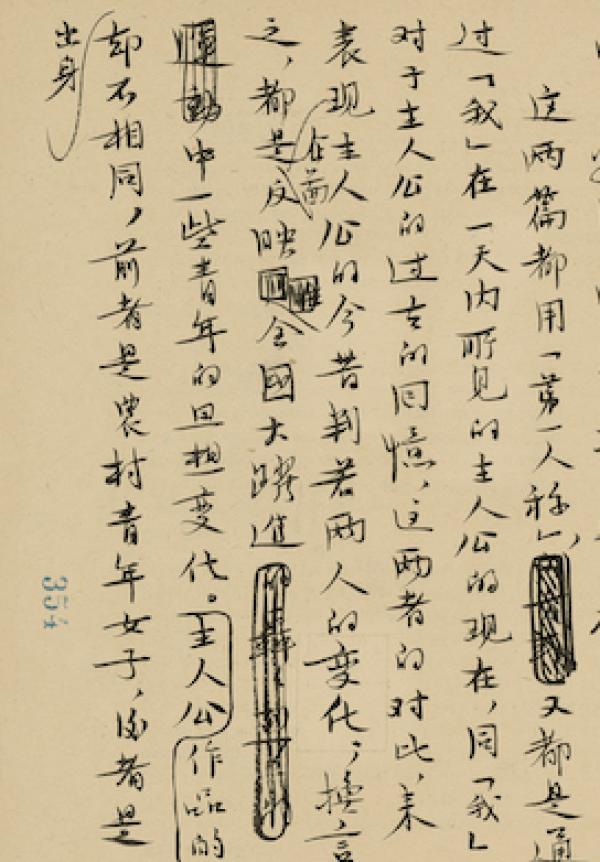 这两篇都用「第一人称」，又都是通
过「我」在一天内所见的主人公的现在，同「我」
对于主人公的过去的回憶，这两者的对比，来
表现主人公的今昔判若两人的变化，换言
之，都是在前反映全國大躍進
運動中一些青年的思想变化。主人公作品的
却不相同，前者是農村青年女子，后者是
出身
354